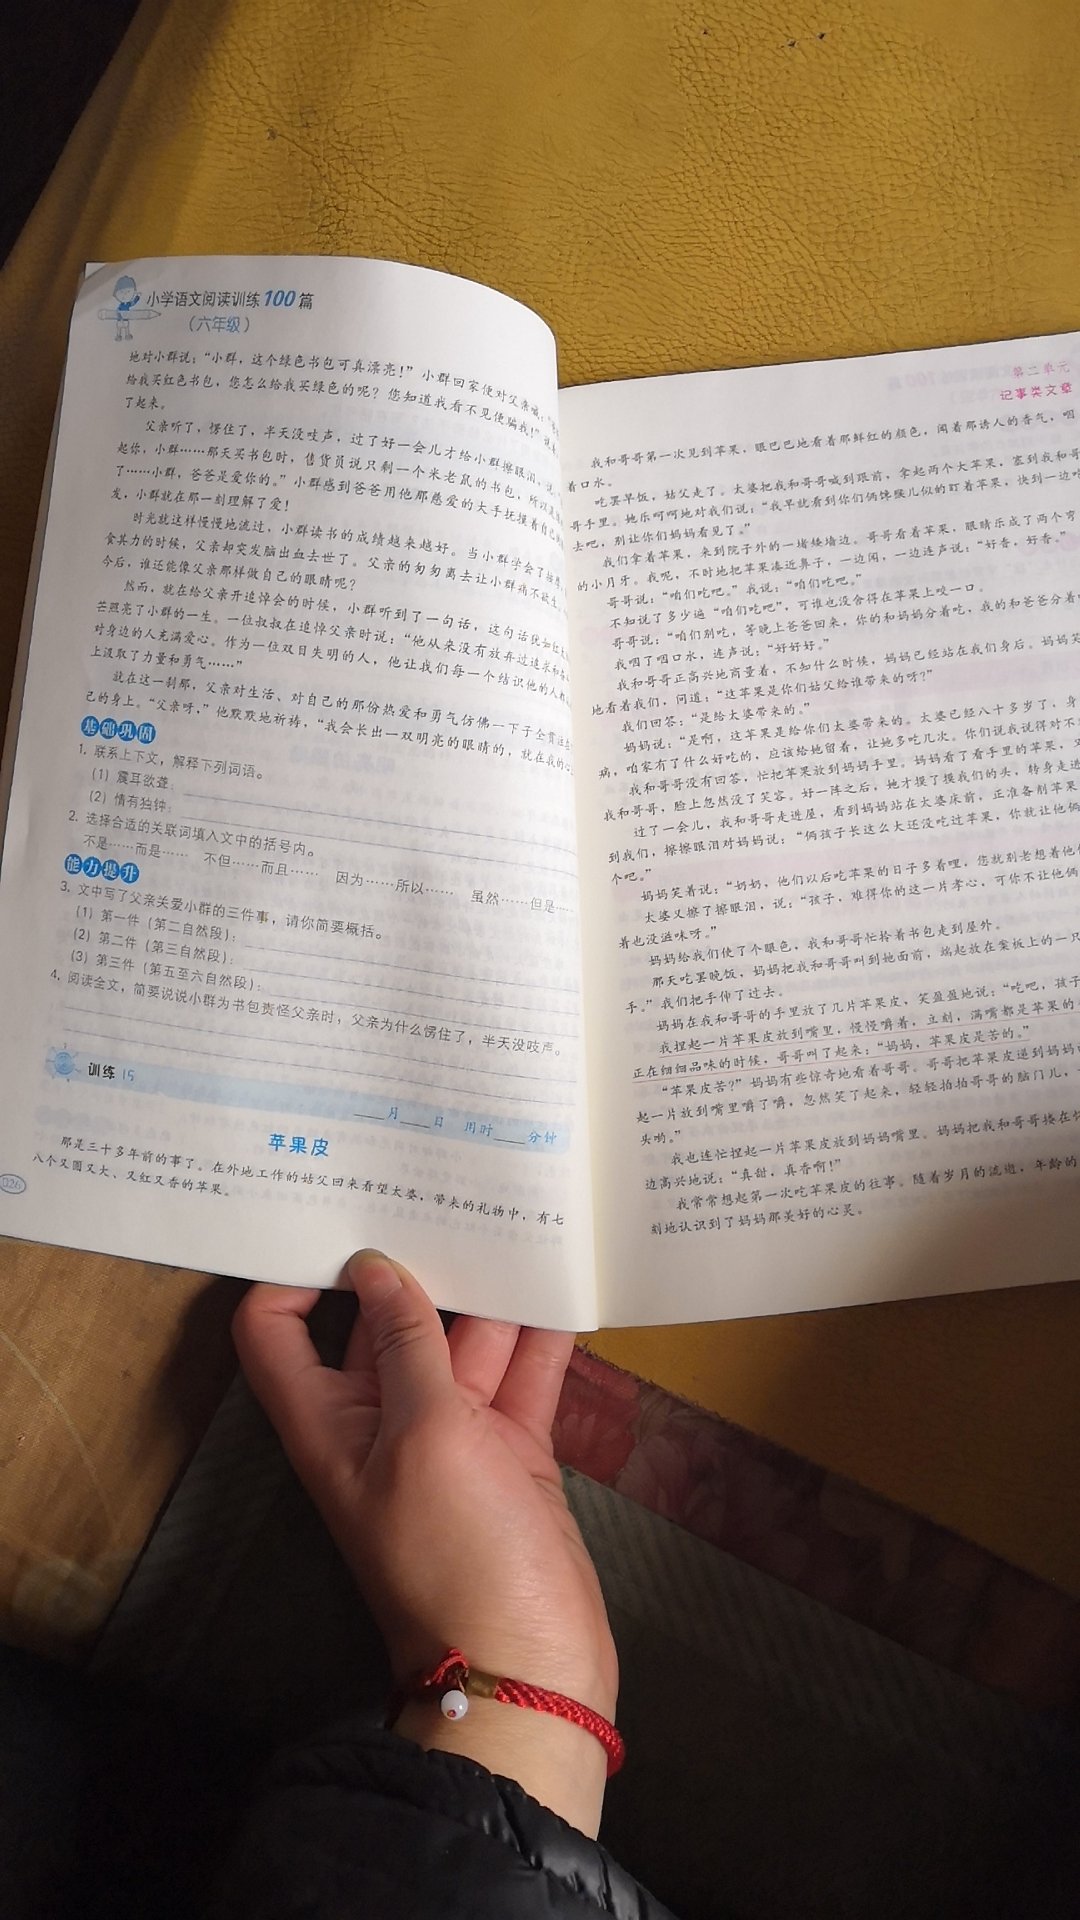 小学语文阅读训练100篇
（六年级）
地对小群说：“小群，这个绿色书包可真漂亮！”小群回家便对父亲喊：
给我买红色书包，您怎么给我买绿色的呢？您知道我看不见便骗我！”
了起来。
父亲听了，愣住了，半天没吱声，过了好一会儿才给小群擦眼泪，说：
起你，小群……那天买书包时，售货员说只剩一个米老鼠的书包，所以
了……小群，爸爸是爱你的。”小群感到爸爸用他那慈爱的大手抚摸着自己的
发，小群就在那一刻理解了爱！
时光就这样慢慢地流过，小群读书的成绩越来越好。当小群学会了按摩，
食其力的时候，父亲却突发脑出血去世了。父亲的匆匆离去让小群痛不欲生。
今后，谁还能像父亲那样做自己的眼睛呢？
然而，就在给父亲开追悼会的时候，小群听到了一句话，这句话犹如
芒照亮了小群的一生。一位叔叔在追悼父亲时说：“他从来没有放弃过追求和
对身边的人充满爱心。作为一位双目失明的人，他让我们每一个结识他的人都
上汲取了力量和勇气……”
就在这一刹那，父亲对生活、对自己的那份热爱和勇气仿佛一下子全贯注
己的身上。“父亲呀，”他默默地祈祷，“我会长出一双明亮的眼睛的，就在我的心
基础巩固
1. 联系上下文，解释下列词语。
（1）震耳欲聋：
（2）情有独钟：
2. 选择合适的关联词填入文中的括号内。
不是……而是…… 不但……而且…… 因为……所以…… 虽然……但是……
能力提升
3. 文中写了父亲关爱小群的三件事，请你简要概括。
（1）第一件（第二自然段）：
（2）第二件（第三自然段）：
（3）第三件（第五至六自然段）：
4. 阅读全文，简要说说小群为书包责怪父亲时，父亲为什么愣住了，半天没吱声。
训练 15
____月____日 用时____分钟
苹果皮
那是三十多年前的事了。在外地工作的姑父回来看望太婆，带来的礼物中，有七
八个又圆又大、又红又香的苹果。
026
第二单元
记事类文章
我和哥哥第一次见到苹果，眼巴巴地看着那鲜红的颜色，闻着那诱人的香气，咽
着口水。
吃罢早饭，姑父走了。太婆把我和哥哥喊到跟前，拿起两个大苹果，塞到我和哥
哥手里。她乐呵呵地对我们说：“我早就看到你们俩馋猴儿似的盯着苹果，快到一边吃
去吧，别让你们妈妈看见了。”
我们拿着苹果，来到院子外的一堵矮墙边。哥哥看着苹果，眼睛乐成了两个弯
的小月牙。我呢，不时地把苹果凑近鼻子，一边闻，一边连声说：“好香，好香。”
哥哥说：“咱们吃吧。”我说：“咱们吃吧。”
不知说了多少遍“咱们吃吧”，可谁也没舍得在苹果上咬一口。
哥哥说：“咱们别吃，等晚上爸爸回来，你的和妈妈分着吃，我的和爸爸分着
我咽了咽口水，连声说：“好好好。”
我和哥哥正高兴地商量着，不知什么时候，妈妈已经站在我们身后。妈妈笑
地看着我们，问道：“这苹果是你们姑父给谁带来的呀？”
我们回答：“是给太婆带来的。”
妈妈说：“是啊，这苹果是给你们太婆带来的。太婆已经八十多岁了，身
病，咱家有了什么好吃的，应该给她留着，让她多吃几次。你们说我说得对不
我和哥哥没有回答，忙把苹果放到妈妈手里。妈妈看了看手里的苹果，又
我和哥哥，脸上忽然没了笑容。好一阵之后，她才摸了摸我们的头，转身走进
过了一会儿，我和哥哥走进屋，看到妈妈站在太婆床前，正准备削苹果
到我们，擦擦眼泪对妈妈说：“俩孩子长这么大还没吃过苹果，你就让他俩
个吧。”
妈妈笑着说：“奶奶，他们以后吃苹果的日子多着哩，您就别老想着他
太婆又擦了擦眼泪，说：“孩子，难得你的这一片孝心，可你不让他俩
着也没滋味呀。”
妈妈给我们使了个眼色，我和哥哥忙拎着书包走到屋外。
那天吃罢晚饭，妈妈把我和哥哥叫到她面前，端起放在案板上的一只
手。”我们把手伸了过去。
妈妈在我和哥哥的手里放了几片苹果皮，笑盈盈地说：“吃吧，孩子
我捏起一片苹果皮放到嘴里，慢慢嚼着，立刻，满嘴都是苹果的
正在细细品味的时候，哥哥叫了起来：“妈妈，苹果皮是苦的。”
“苹果皮苦？”妈妈有些惊奇地看着哥哥。哥哥把苹果皮递到妈妈
起一片放到嘴里嚼了嚼，忽然笑了起来，轻轻拍拍哥哥的脑门儿，
头哟。”
我也连忙捏起一片苹果皮放到妈妈嘴里。妈妈把我和哥哥搂在怀
边高兴地说：“真甜，真香啊！”
我常常想起第一次吃苹果皮的往事。随着岁月的流逝，年龄的
刻地认识到了妈妈那美好的心灵。